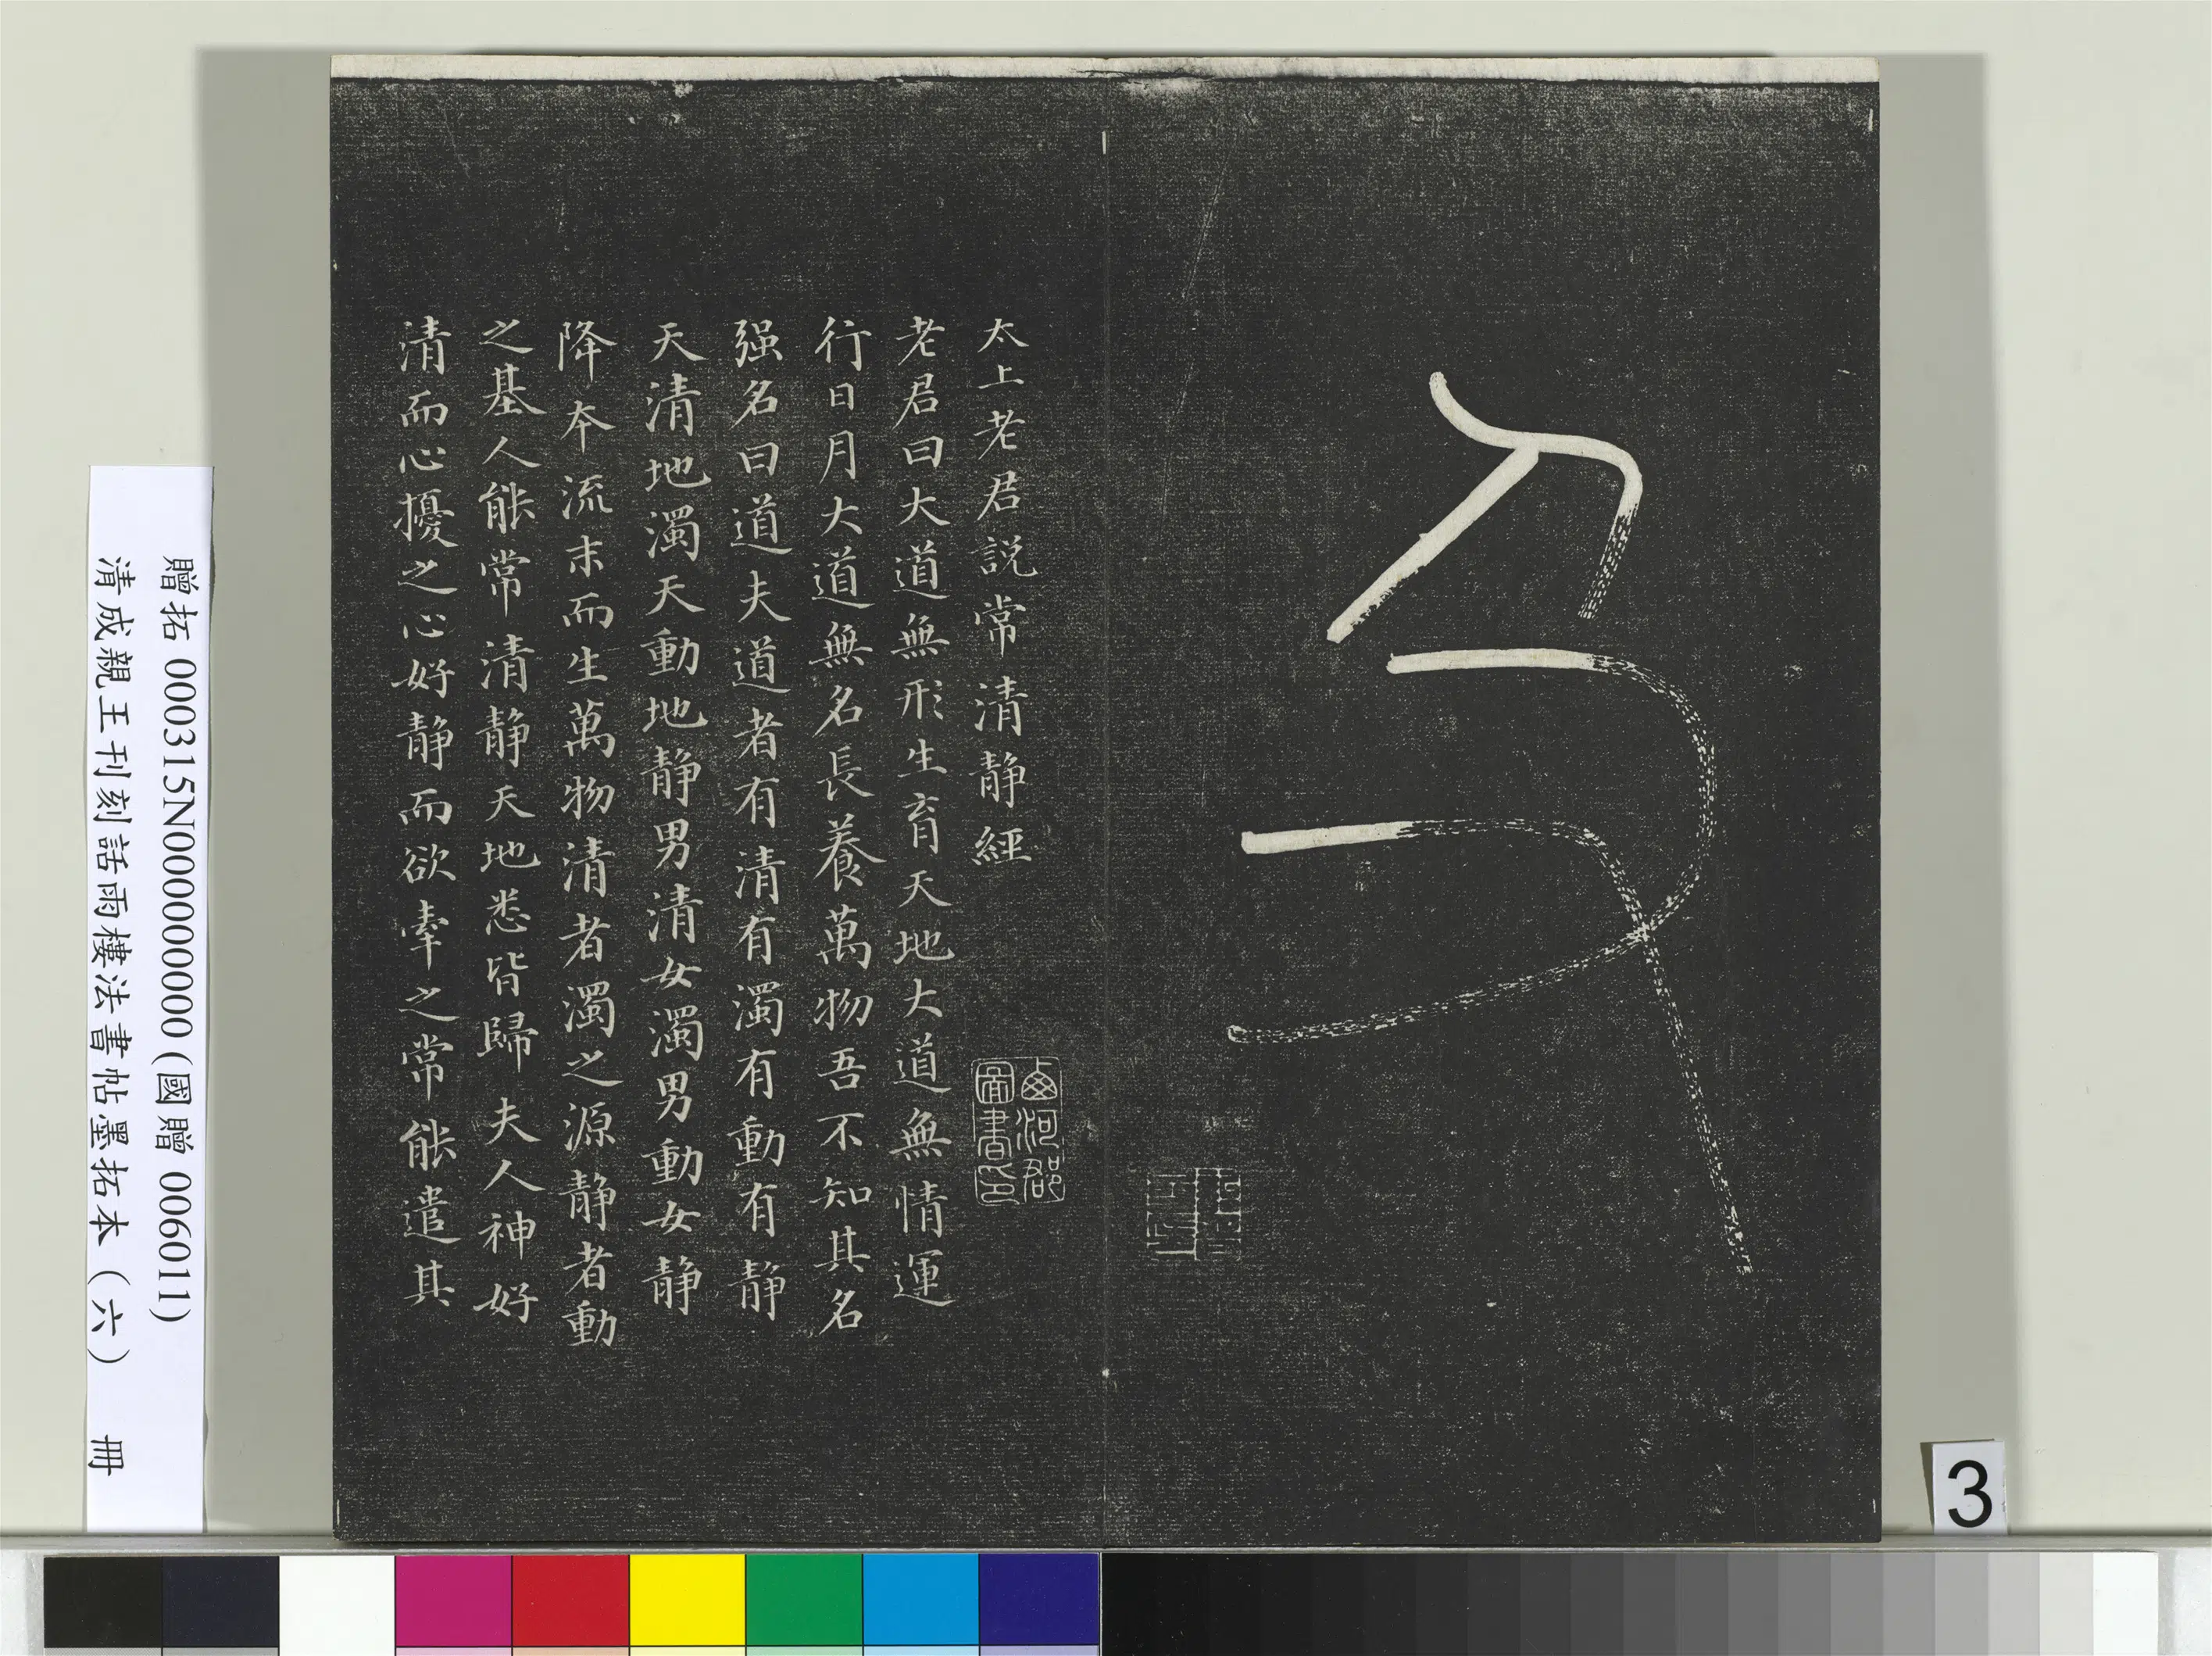 太上老君説常清静經
西河郡
圖書印
老君曰大道無形生育天地大道無情運
行日月大道無名長養萬物吾不知其名
强名曰道夫道者有清有濁有動有静
天清地濁天動地静男清女濁男動女静
降本流末而生萬物清者濁之源静者動
之基人能常清静天地悉皆歸夫人神好
清而心擾之心好静而欲牽之常能遣其
贈拓 000315N000000000 (國贈 006011)
清成親王刊刻話雨樓法書帖墨拓本（六） 冊
3